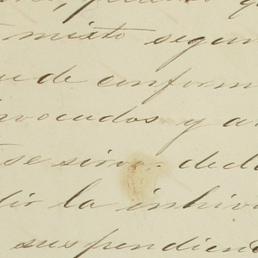 mixto segun
de conform
invocados y a
se sirva decla
dir la inhivi
suspendiend